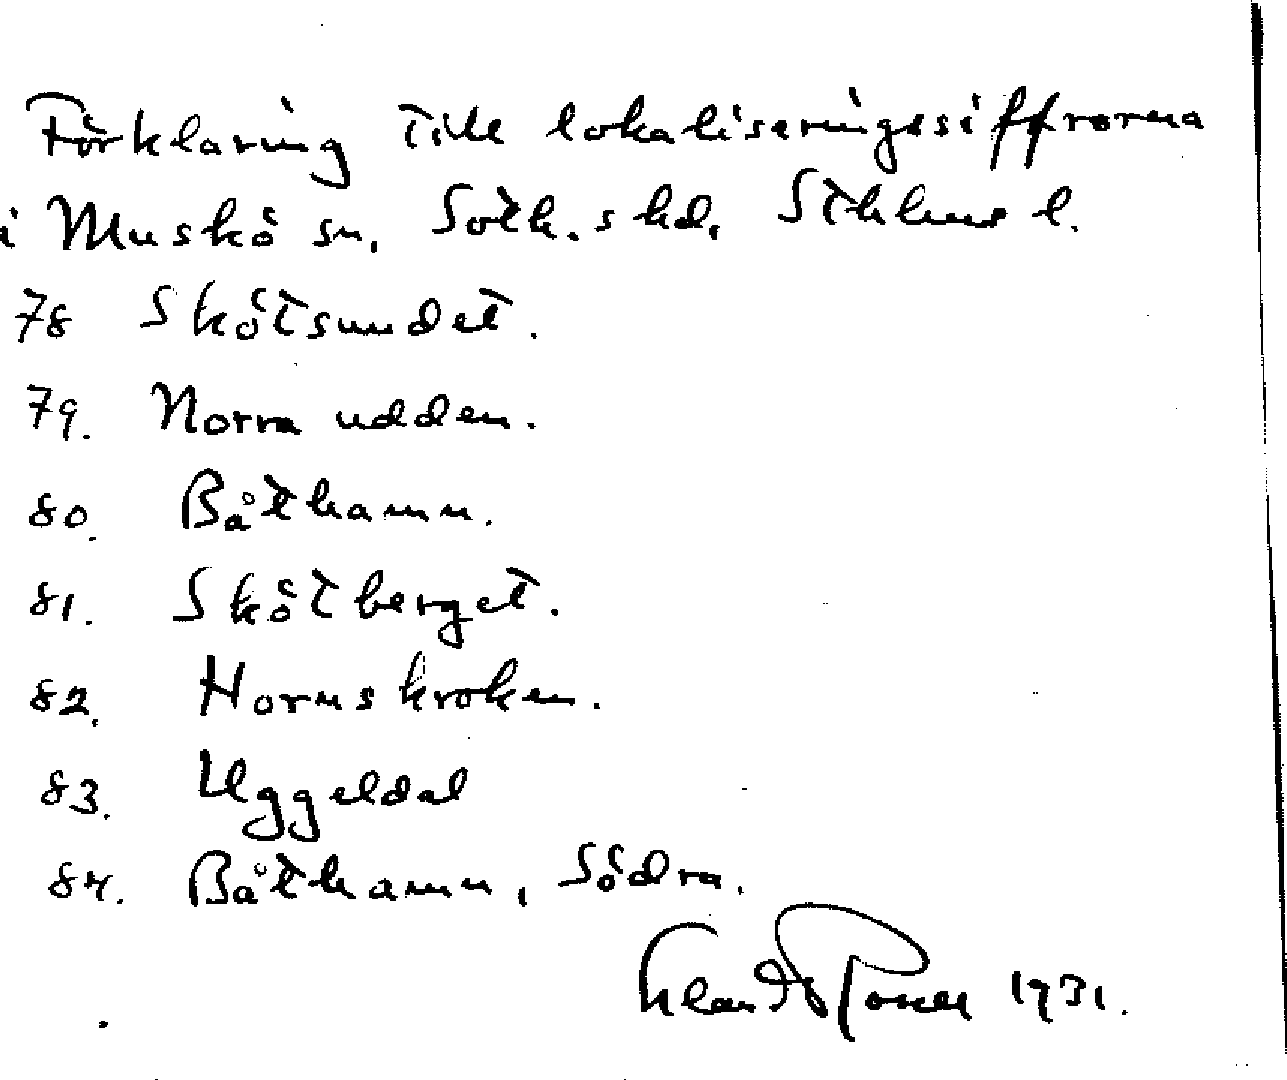 Förklaring till lokaliseringssiffrorna
i Muskö sn, Soth.s hd, Sthlms l.
78 Skötsundet.
79. Norra udden.
80. Båthamn.
81. Skötberget.
82. Hornskroken.
83. Uggeldal
84. Båthamn, Södra.
1931.